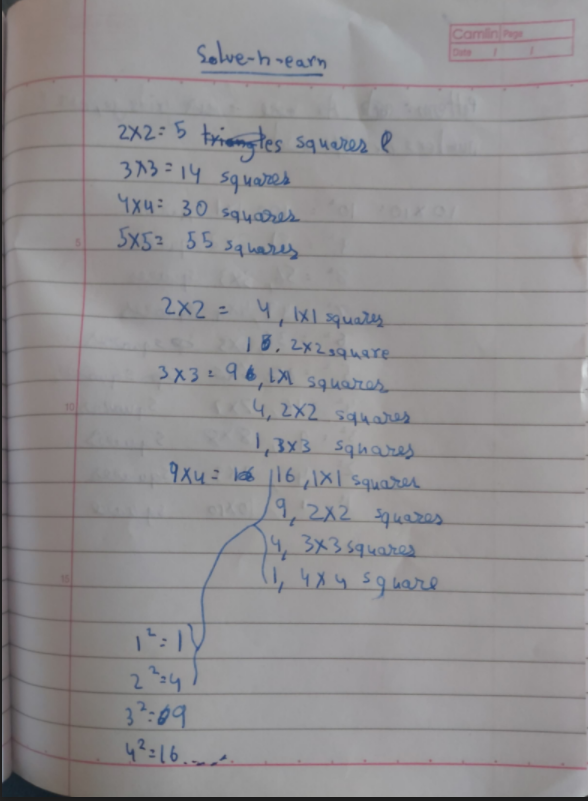 Camlin Page
Date / /
Solve-n-earn
2x2= 5 triangles squares
3x3=14 squares
4x4= 30 squares
5
5x5= 55 squares
2x2 = 4, 1x1 squares
1, 2x2 square
3x3= 9, 1x1 squares
10
4, 2x2 squares
1, 3x3 squares
9x4= 16 16, 1x1 squares
9, 2x2 squares
4, 3x3 squares
15
1, 4x4 square
1²=1
2²=4
3²=9
4²=16.....